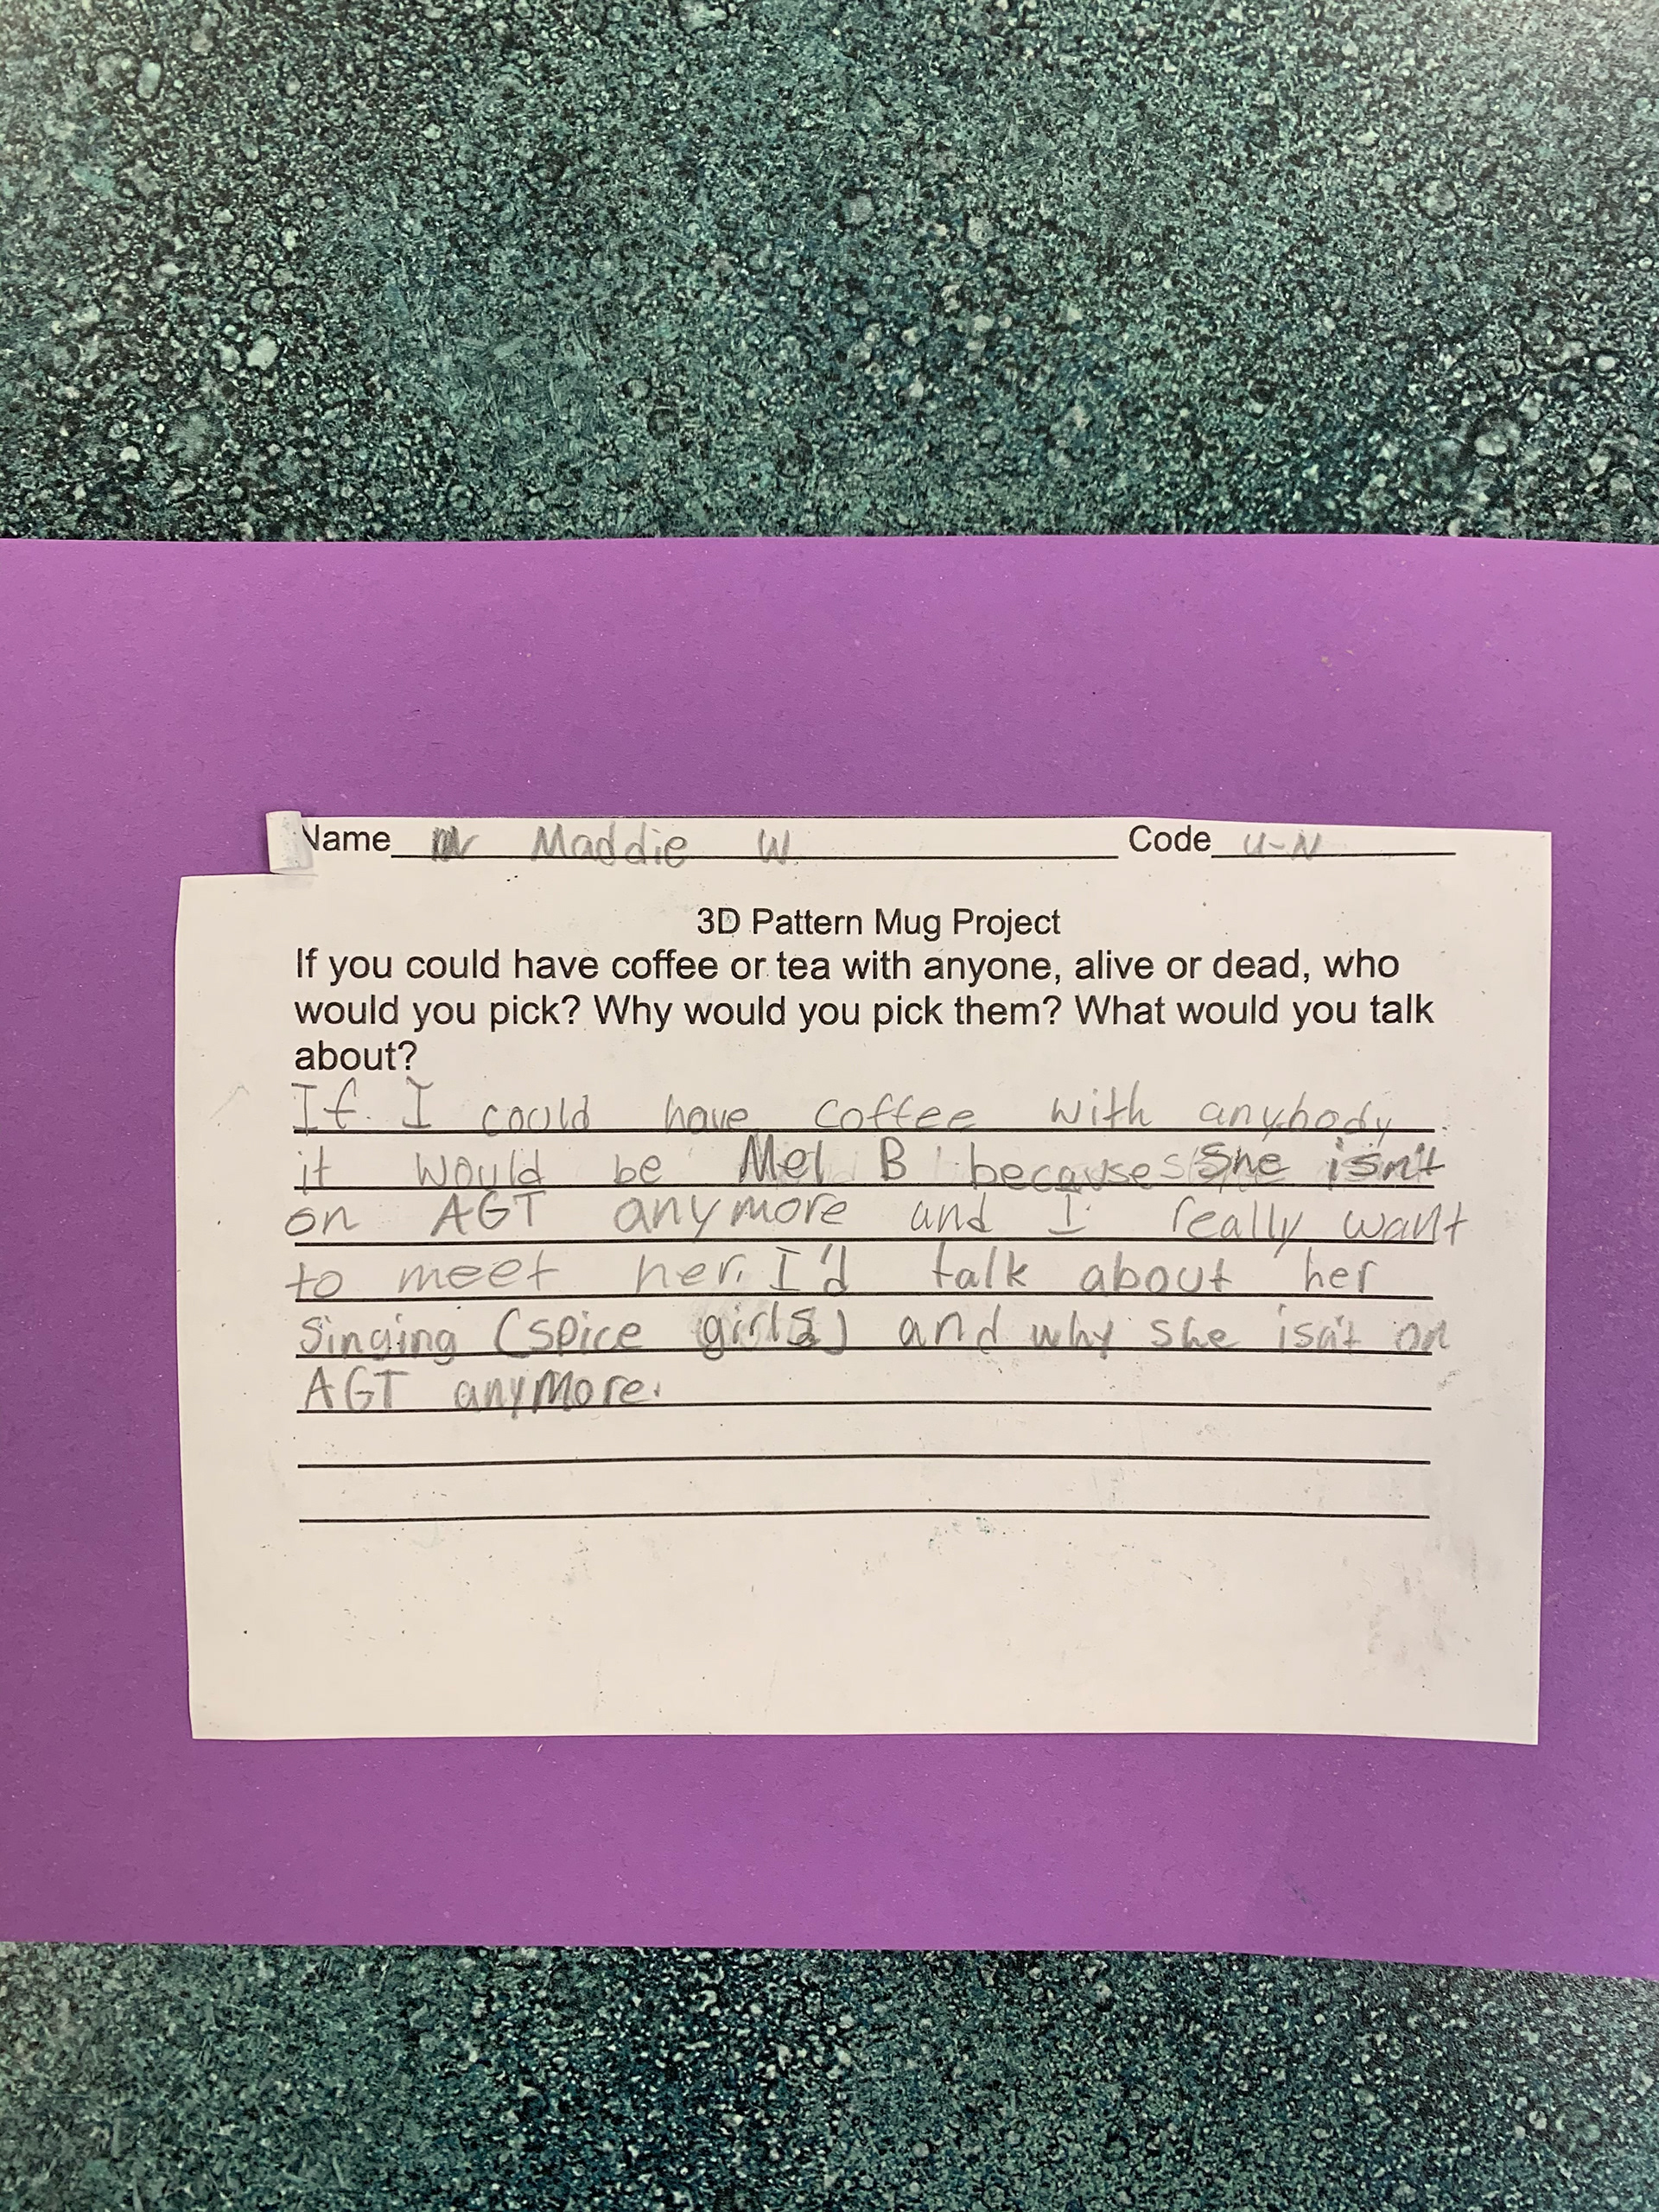 Name Maddie W. Code U-N
3D Pattern Mug Project
If you could have coffee or tea with anyone, alive or dead, who
would you pick? Why would you pick them? What would you talk
about?
If I could have coffee with anybody
it would be Mel B because she isn't
on AGT anymore and I really want
to meet her. I'd talk about her
singing (spice girls) and why she isn't on
AGT anymore.